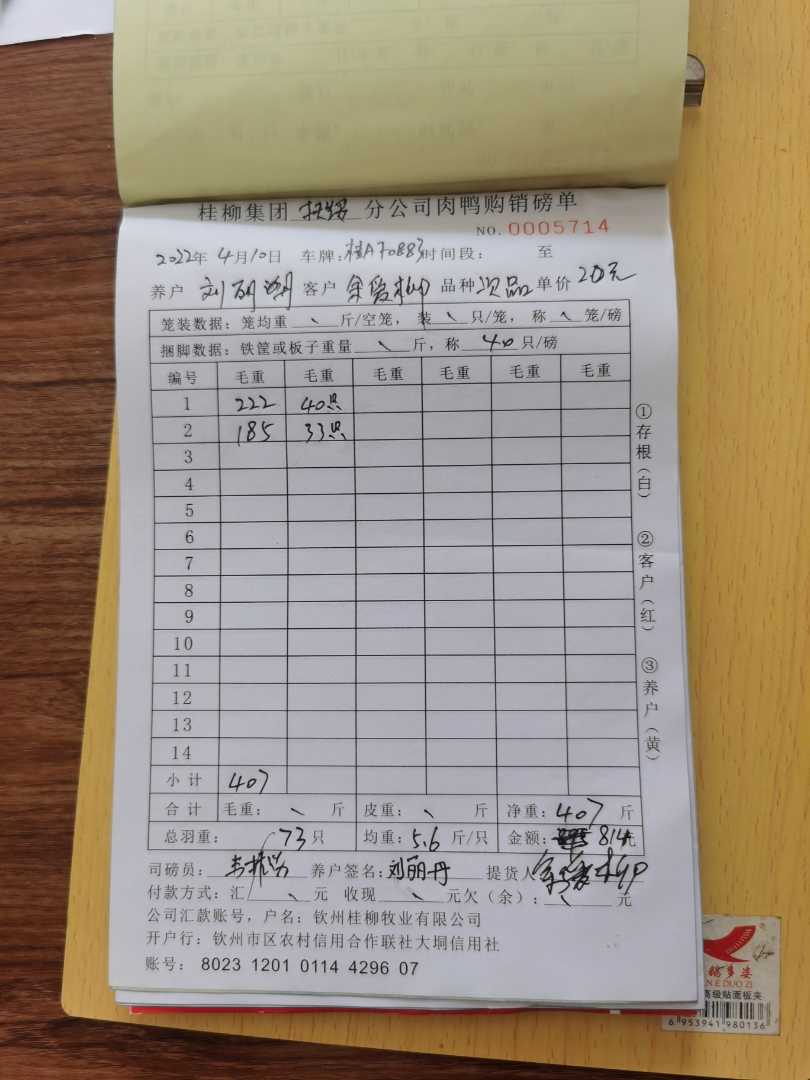 桂柳集团 扶绥 分公司肉鸭购销磅单
NO. 0005714
2022年 4月10日 车牌:桂A70883时间段: 至
养户 刘丽 客户 余爱柳 品种 次品 单价 2.0元
笼装数据: 笼均重 、 斤/空笼, 装 、 只/笼, 称 、 笼/磅
捆脚数据: 铁筐或板子重量 、 斤, 称 40 只/磅
编号 毛重 毛重 毛重 毛重 毛重 毛重
1 222 40只
2 185 33只
3
4
5
6
7
8
9
10
11
12
13
14
小计 407
合计 毛重: 、 斤 皮重: 、 斤 净重: 407 斤
总羽重: 73只 均重: 5.6 斤/只 金额: 814元
司磅员: 养户签名: 刘丽丹 提货人 余爱柳
付款方式: 汇/ 、 元 收现 、 元欠(余): 、 元
公司汇款账号, 户名: 钦州桂柳牧业有限公司
开户行: 钦州市区农村信用合作联社大垌信用社
账号: 8023 1201 0114 4296 07
①存根(白)
②客户(红)
③养户(黄)
多姿
NEDUOZI
高级贴面板夹
6 953941 980136